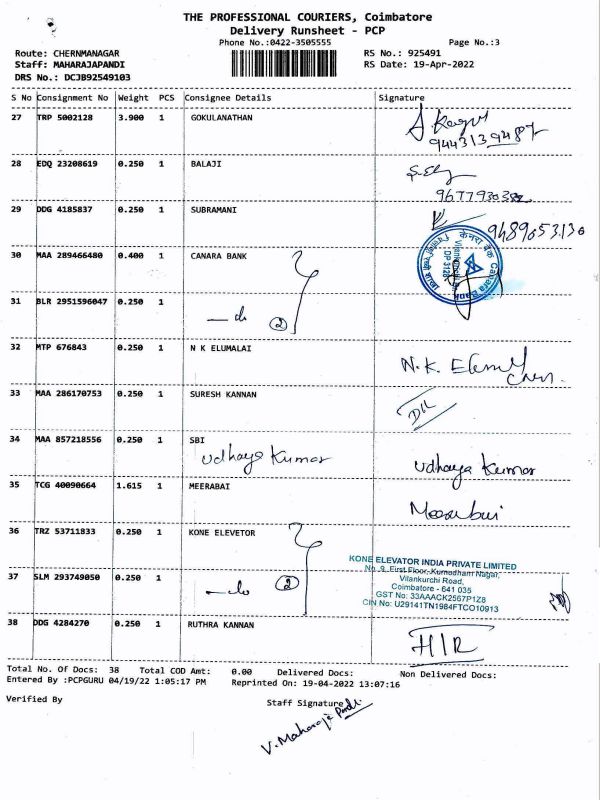 THE PROFESSIONAL COURIERS, Coimbatore
Delivery Runsheet - PCP
Phone No.:0422-3505555 Page No.:3
Route: CHERNMANAGAR RS No.: 925491
Staff: MAHARAJAPANDI RS Date: 19-Apr-2022
DRS No.: DCJB92549103
S No Consignment No Weight PCS Consignee Details Signature
27 TRP 5002128 3.900 1 GOKULANATHAN
9443139487
28 EDQ 23208619 0.250 1 BALAJI
29 DDG 4185837 0.250 1 SUBRAMANI
9489053130
30 MAA 289466480 0.400 1 CANARA BANK
केनरा बैंक Canara Bank
DP-3128
31 BLR 2951596047 0.250 1
do 2
32 MTP 676843 0.250 1 N K ELUMALAI
N.K.
33 MAA 286170753 0.250 1 SURESH KANNAN
34 MAA 857218556 0.250 1 SBI
Udhaya Kumar Udhaya Kumar
35 TCG 40090664 1.615 1 MEERABAI
Meerabai
36 TRZ 53711833 0.250 1 KONE ELEVETOR
KONE ELEVATOR INDIA PRIVATE LIMITED
No. 9, First Floor, Kumudham Nagar,
Vilankurchi Road,
Coimbatore - 641 035
GST No: 33AAACK2567P1Z8
CIN No: U29141TN1984FTCO10913
37 SLM 293749050 0.250 1
do 2
38 DDG 4284270 0.250 1 RUTHRA KANNAN
H/R
Total No. Of Docs: 38 Total COD Amt: 0.00 Delivered Docs: Non Delivered Docs:
Entered By :PCPGURU 04/19/22 1:05:17 PM Reprinted On: 19-04-2022 13:07:16
Verified By Staff Signature
V. Maharaja Pandi